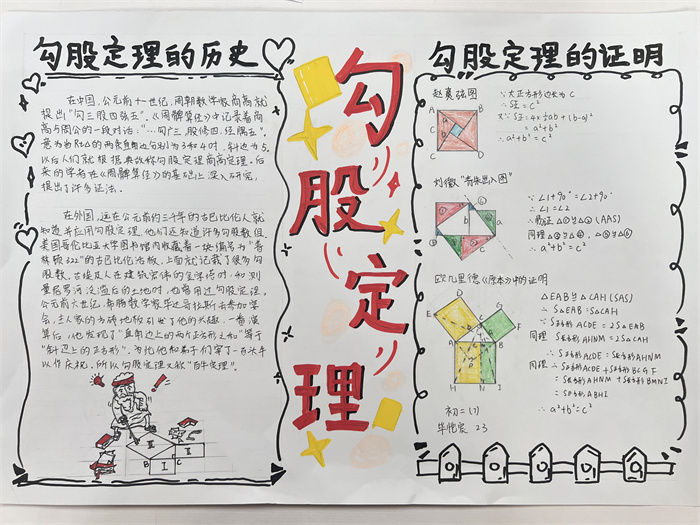 勾股定理的历史
在中国,公元前十一世纪,周朝数学家商高就
提出"勾三股四弦五"。《周髀算经》中记录着商
高与周公的一段对话:"…勾广三,股修四,径隅五".
意为当Rt△的两条直角边分别为3和4时,斜边为5.
以后人们就根据典故称勾股定理商高定理,后
来的学者在《周髀算经》的基础上深入研究,
提出了许多证法.
在外国,远在公元前约三千年的古巴比伦人就
知道并应用勾股定理,他们还知道许多勾股数组
美国哥伦比亚大学图书馆内收藏着一块编号为"普
林顿322"的古巴比伦泥板,上面就记载了很多勾
股数。古埃及人在建筑宏伟的金字塔时,和测
量尼罗河泛滥后的土地时,也常用过勾股定理,
公元前六世纪,希腊数学家毕达哥拉斯去参加学
会,主人家的方砖地板引发了他的兴趣,一番演
算后,他发现了"直角边上的两个正方形之和"等于
"斜边上的正方形",为此他和弟子们宰了一百头牛
以作庆祝,所以勾股定理又称"百牛定理".
B
C
Ⅰ
Ⅱ
Ⅲ
勾
股
定
理
勾股定理的证明
赵爽弦图
A
B
C
D
a
b
c
∵大正方形边长为c
∴S正=c²
又∵S正=4×½ab+(b-a)²
=a²+b²
∴a²+b²=c²
刘徽"青朱出入图"
a
b
c
∵∠1+90°=∠2+90°
∴∠1=∠2
∴易证△①≌△② (AAS)
同理△③≌△④,△⑤≌△⑥
∴a²+b²=c²
欧几里德《原本》中的证明
D
E
F
G
C
A
B
H
N
I
△EAB≌△CAH (SAS)
∴S△EAB=S△CAH
∵S正方形ACDE=2S△EAB
同理 S矩形AHNM=2S△CAH
∴S正方形ACDE=S矩形AHNM
同理∴S正方形ACDE+S正方形BCGF
=S矩形AHNM+S矩形BMNI
=S正方形ABHI
∴a²+b²=c²
初二(7)
23